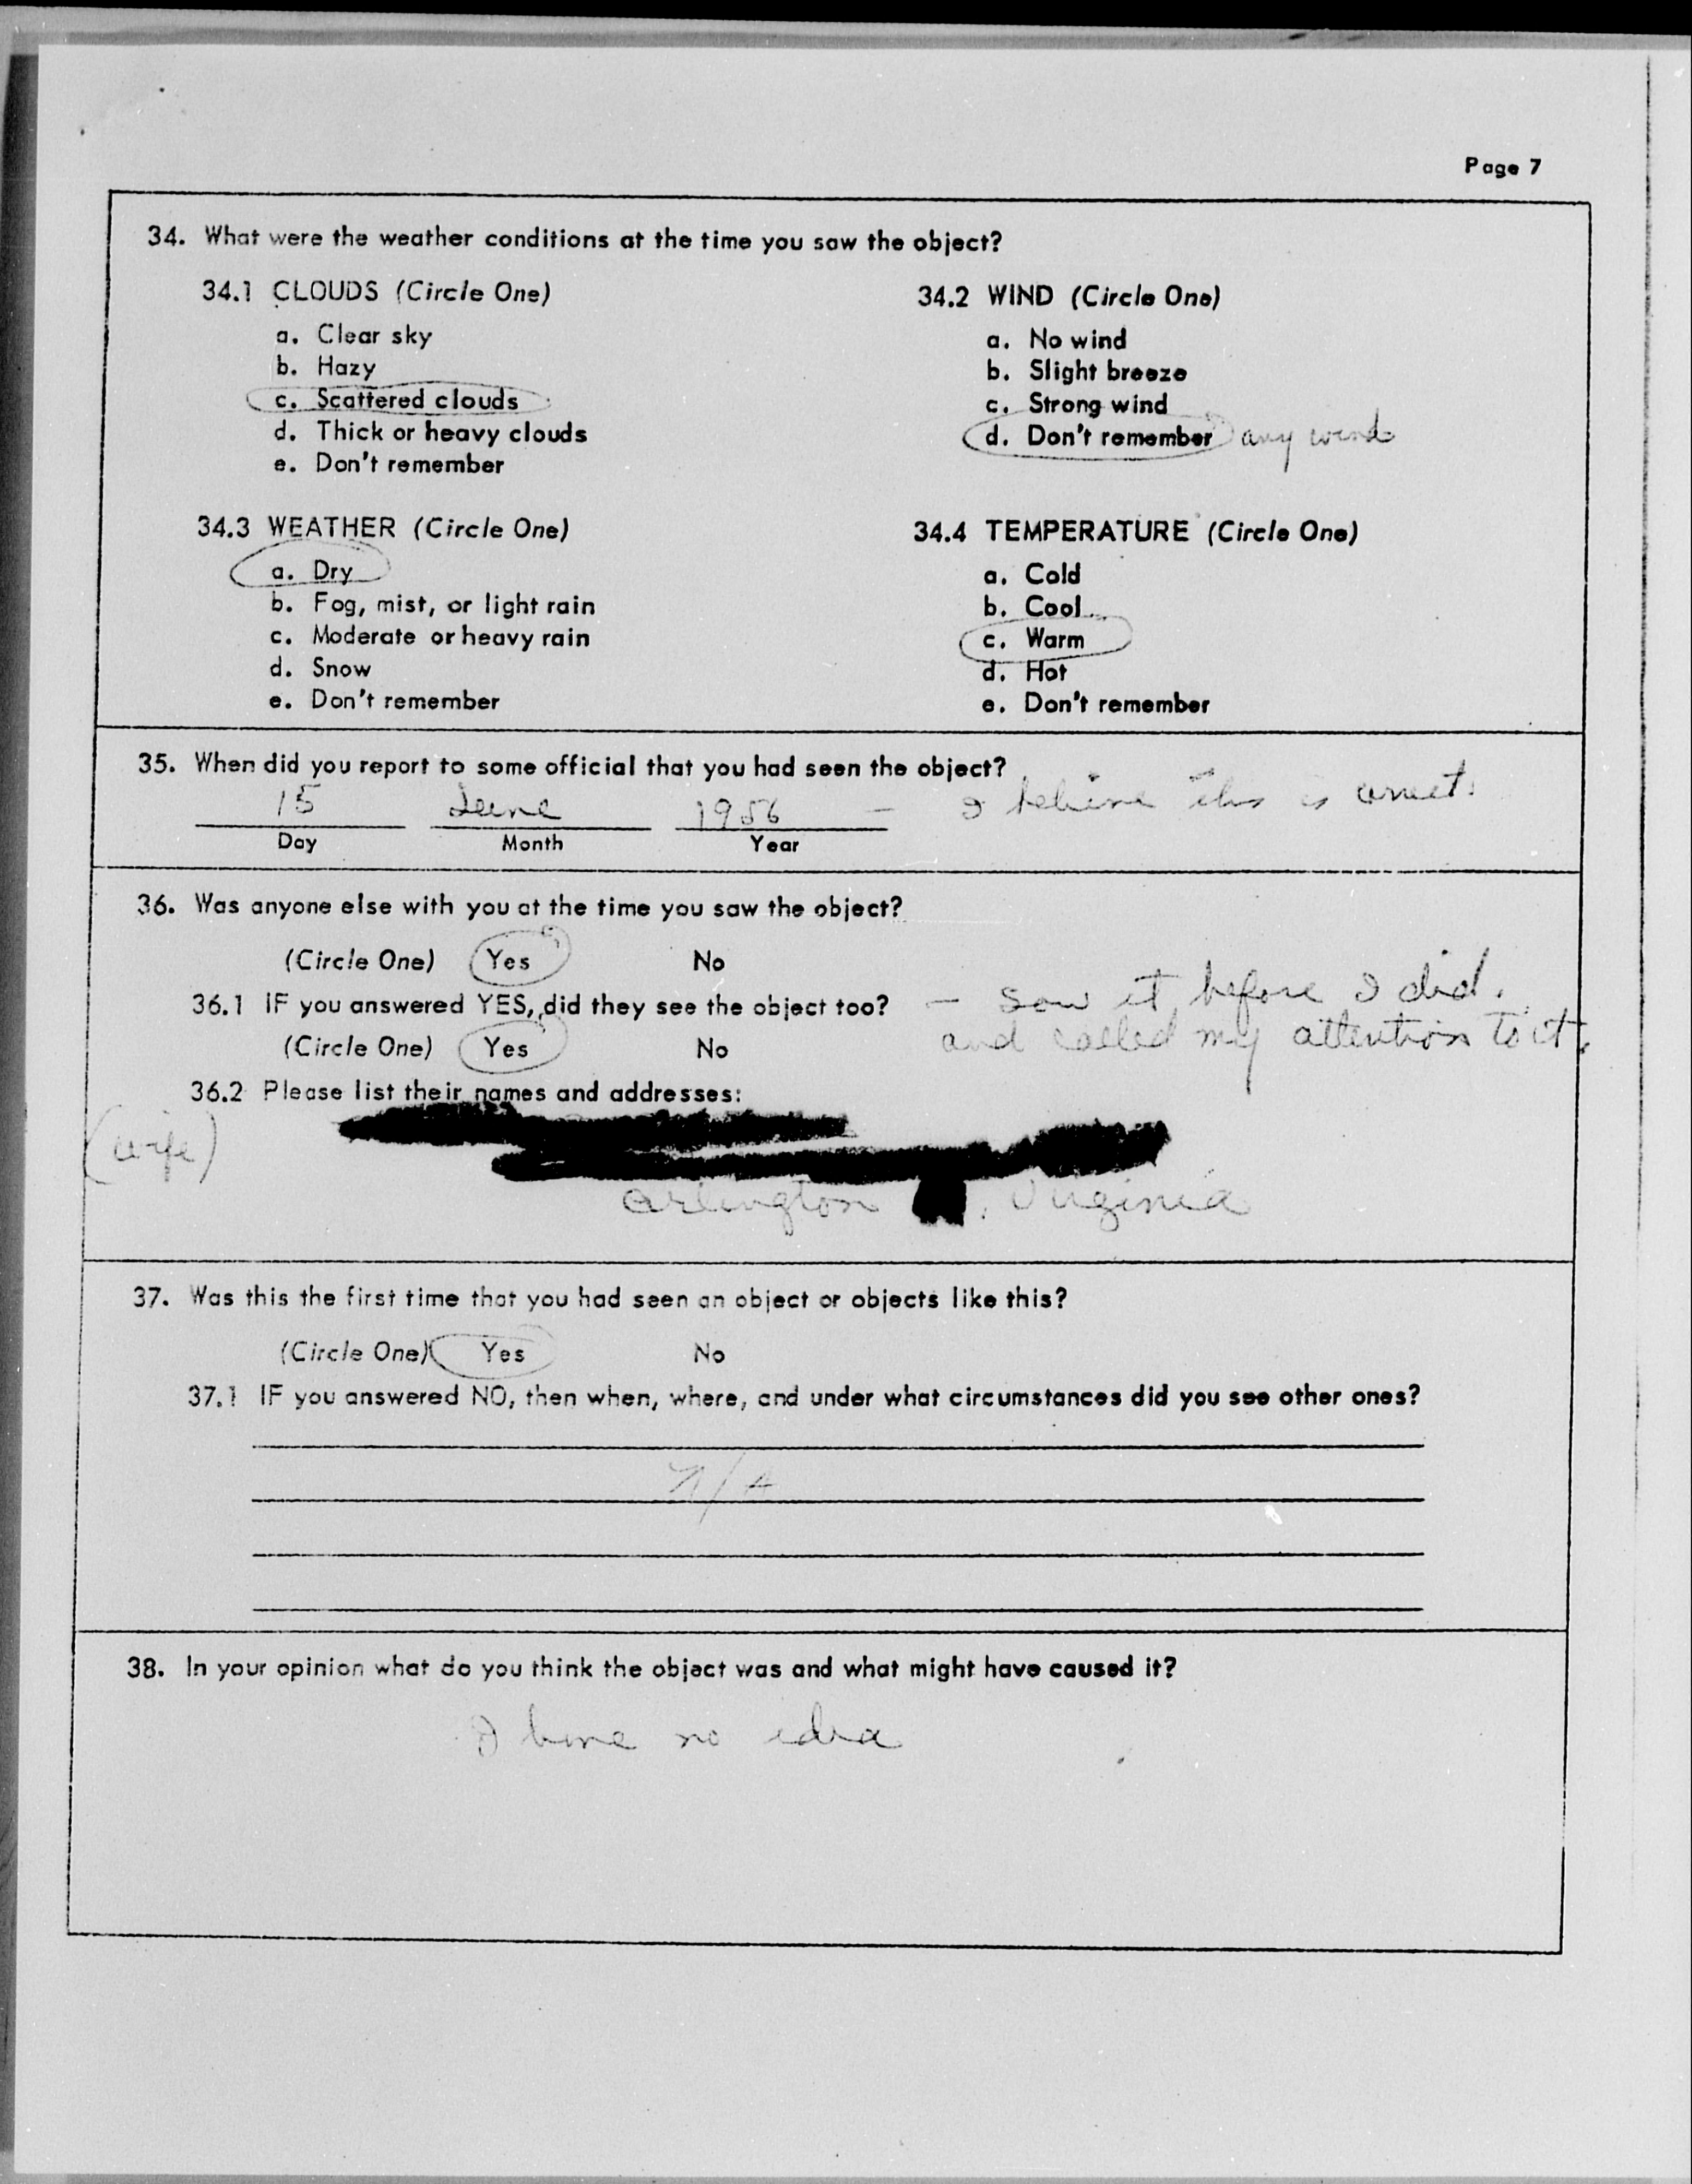 Page 7
34. What were the weather conditions at the time you saw the object?
34.1 CLOUDS (Circle One)
a. Clear sky
b. Hazy
c. Scattered clouds
d. Thick or heavy clouds
e. Don't remember
34.2 WIND (Circle One)
a. No wind
b. Slight breeze
c. Strong wind
d. Don't remember any wind
34.3 WEATHER (Circle One)
a. Dry
b. Fog, mist, or light rain
c. Moderate or heavy rain
d. Snow
e. Don't remember
34.4 TEMPERATURE (Circle One)
a. Cold
b. Cool
c. Warm
d. Hot
e. Don't remember
35. When did you report to some official that you had seen the object?
15 June 1956 – I believe this is correct.
Day Month Year
36. Was anyone else with you at the time you saw the object?
(Circle One) Yes No
36.1 IF you answered YES, did they see the object too? – saw it before I did.
(Circle One) Yes No and called my attention to it.
36.2 Please list their names and addresses:
(wife)
Arlington , Virginia
37. Was this the first time that you had seen an object or objects like this?
(Circle One) Yes No
37.1 IF you answered NO, then when, where, and under what circumstances did you see other ones?
N/A
38. In your opinion what do you think the object was and what might have caused it?
I have no idea